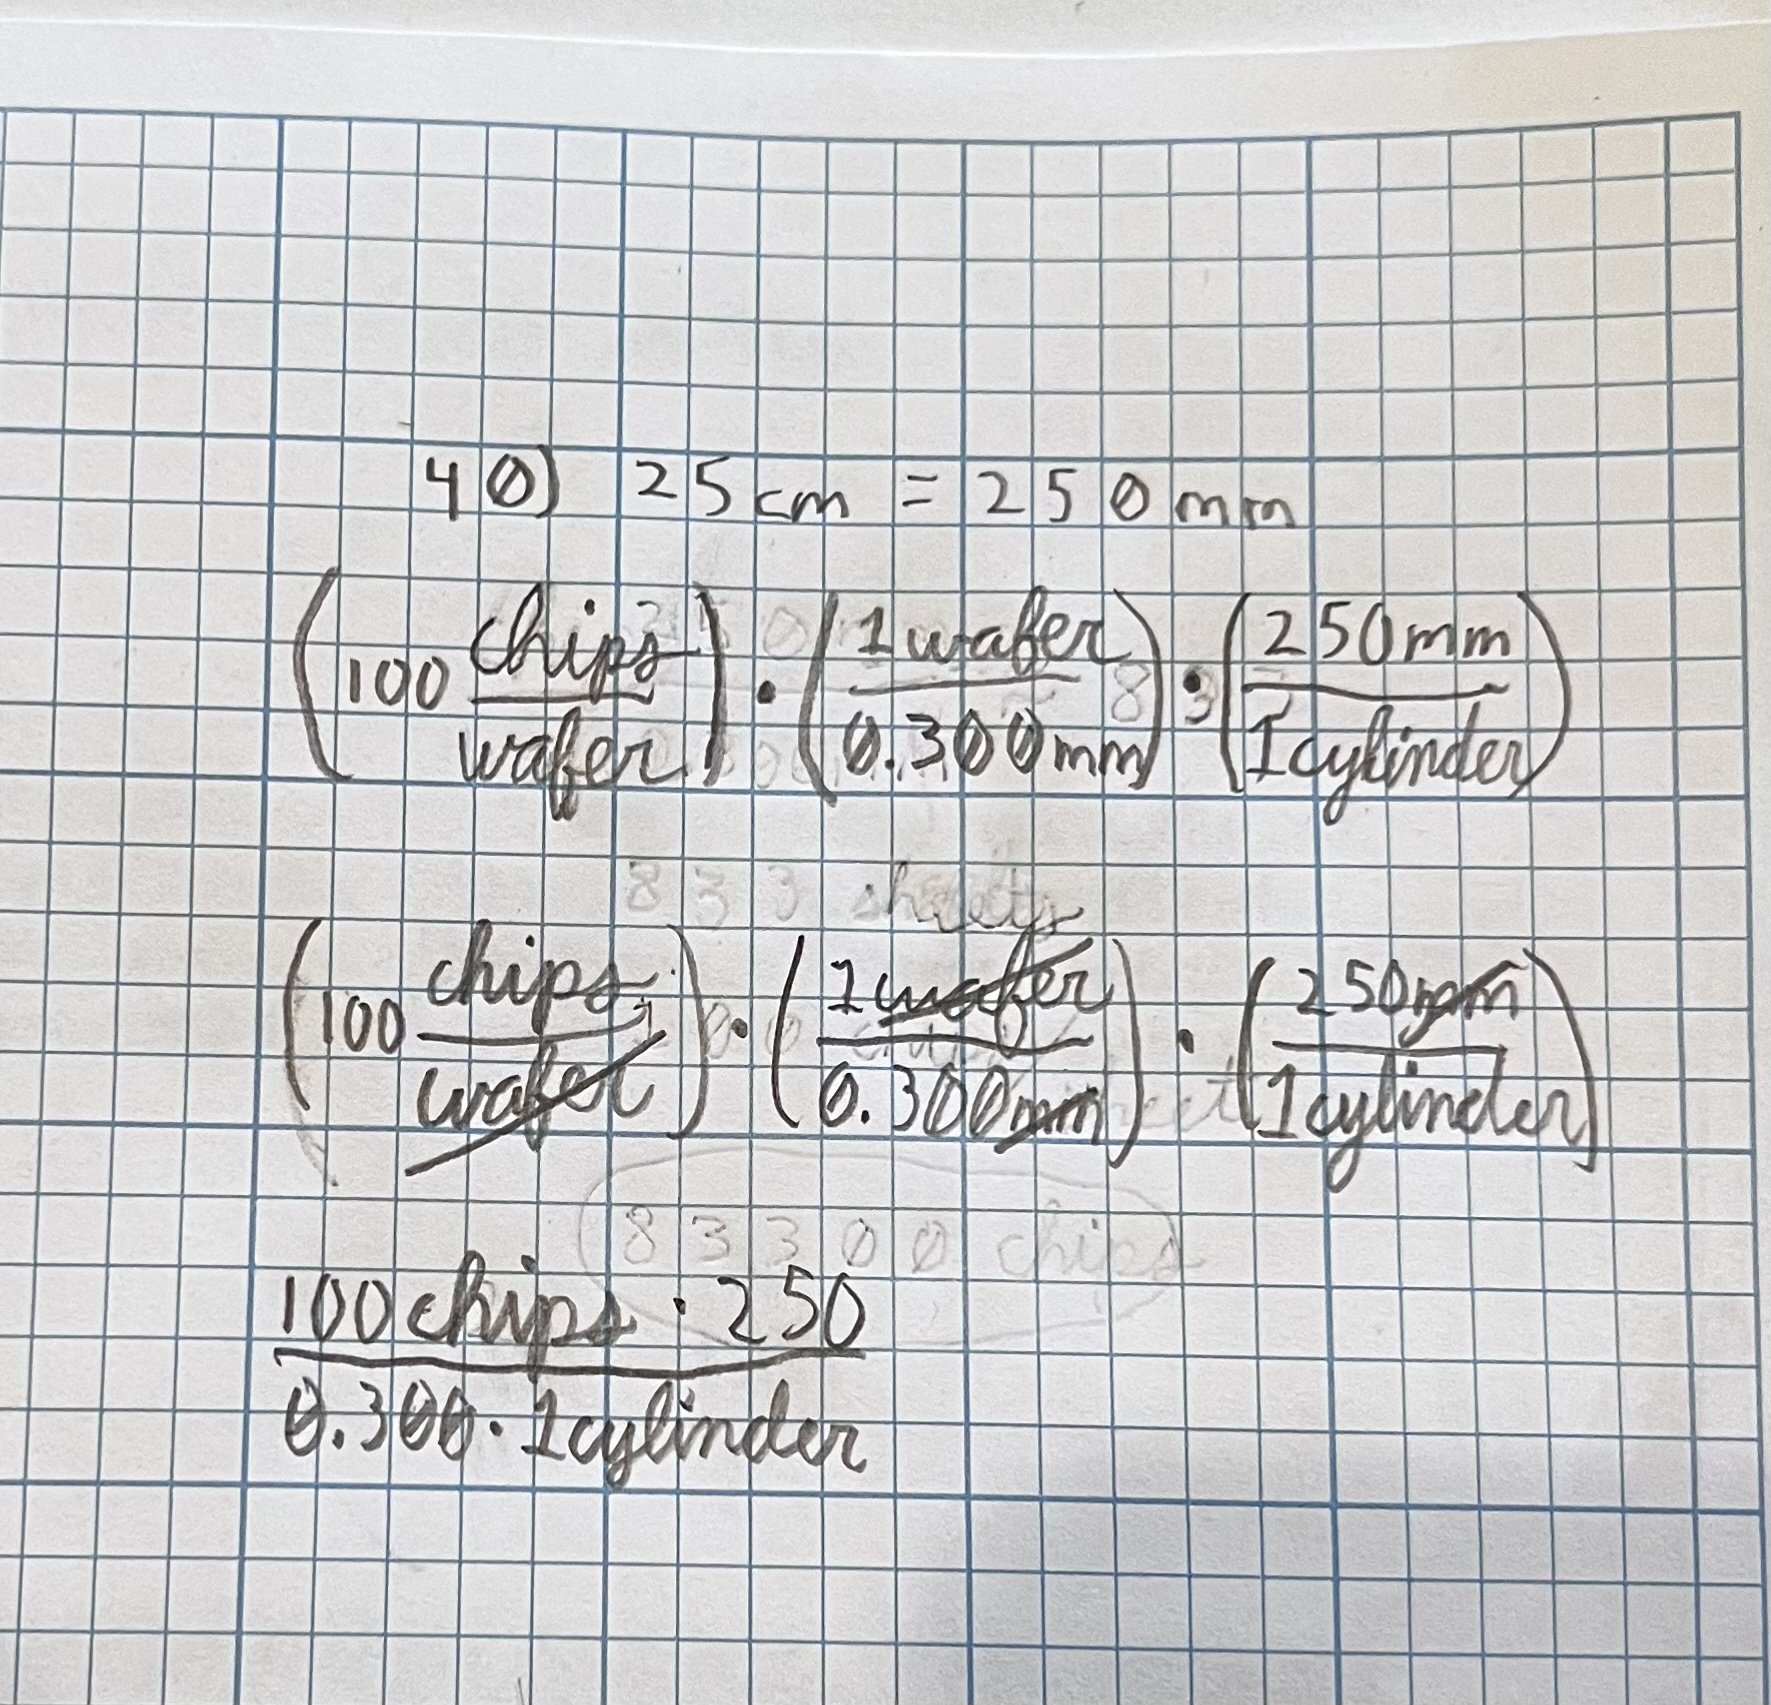 40) 25 cm = 250 mm
(100 chips/wafer) · (1 wafer/0.300 mm) · (250 mm/1 cylinder)
833 sheets
(100 chips/wafer) · (1 wafer/0.300 mm) · (250 mm/1 cylinder)
83300 chips
100 chips · 250
0.300 · 1 cylinder